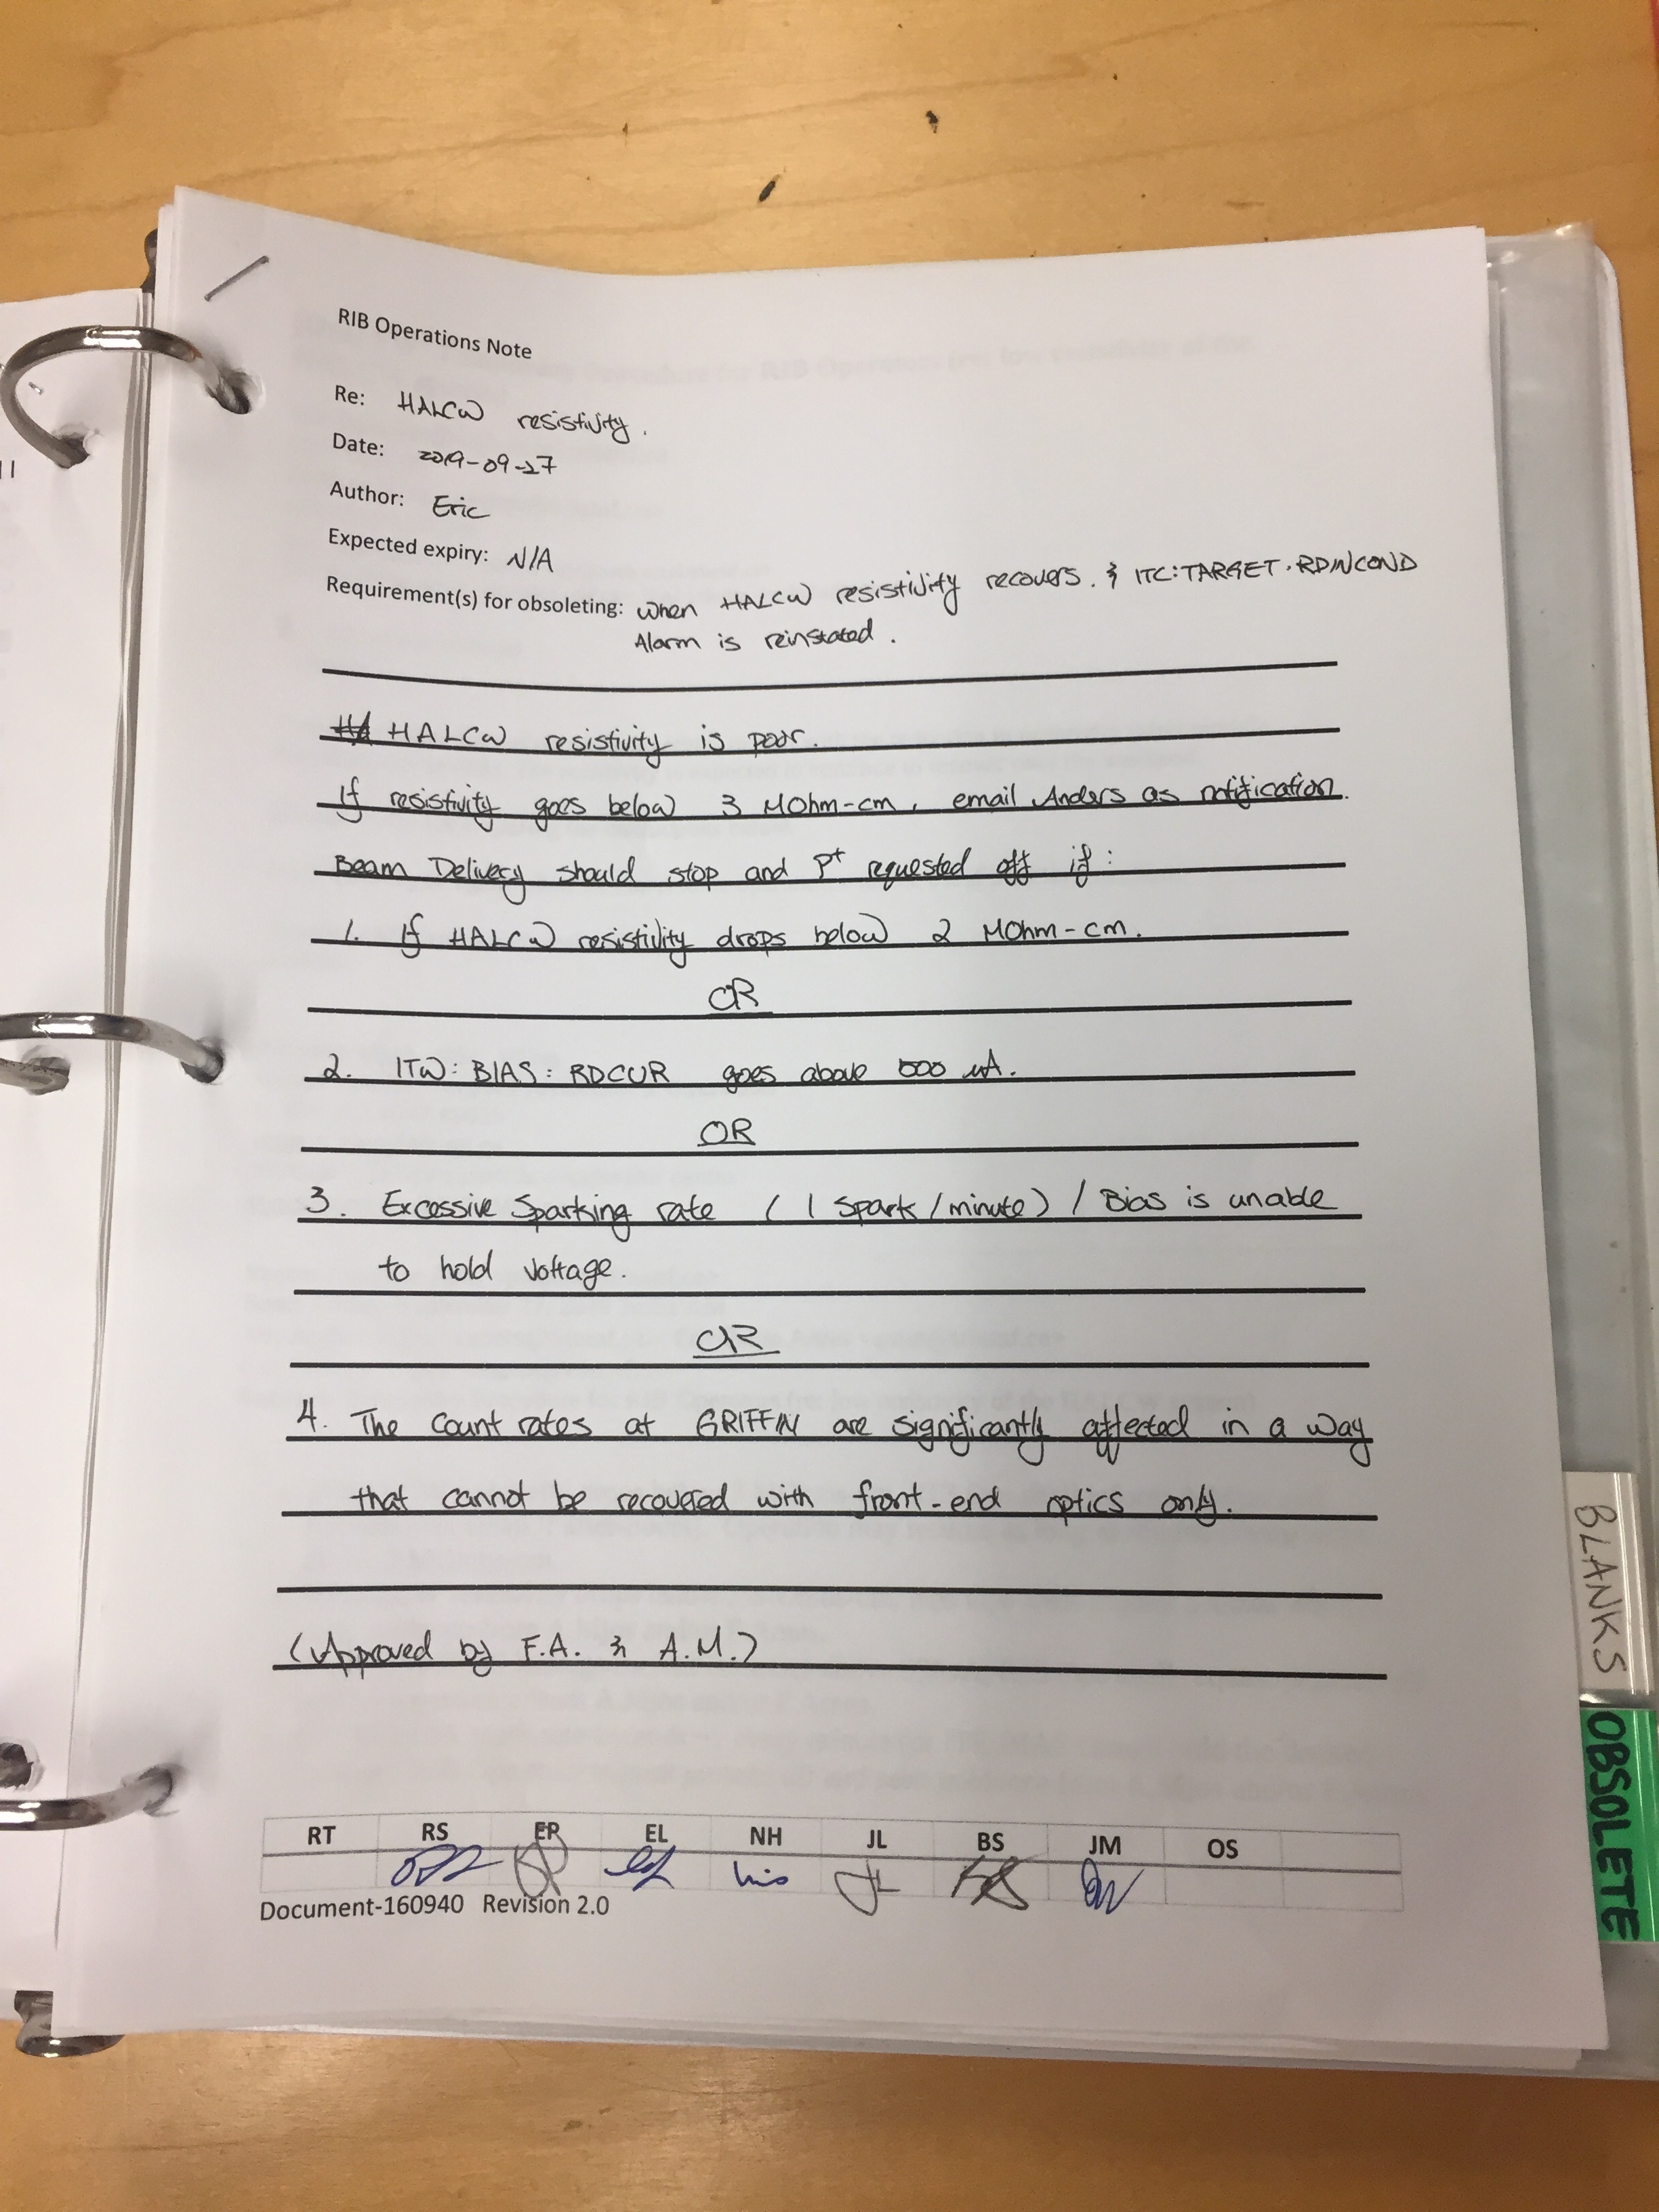 RIB Operations Note
Re: HALCW resistivity.
Date: 2019-09-27
Author: Eric
Expected expiry: N/A
Requirement(s) for obsoleting: when HALCW resistivity recovers. & ITC:TARGET.RDINCOND
Alarm is reinstated.
HALCW resistivity is poor.
If resistivity goes below 3 MOhm-cm, email Anders as notification.
Beam Delivery should stop and P+ requested off if:
1. If HALCW resistivity drops below 2 MOhm-cm.
OR
2. ITW: BIAS: RDCUR goes above uA.
OR
3. Excessive Sparking rate (1 spark/minute) / Bias is unable
to hold voltage.
OR
4. The count rates at GRIFFIN are significantly affected in a way
that cannot be recovered with front-end optics only.
(Approved by F.A. & A.M.)
RT RS EP EL NH JL BS JM OS
JL
Document-160940 Revision 2.0
BLANKS
OBSOLETE